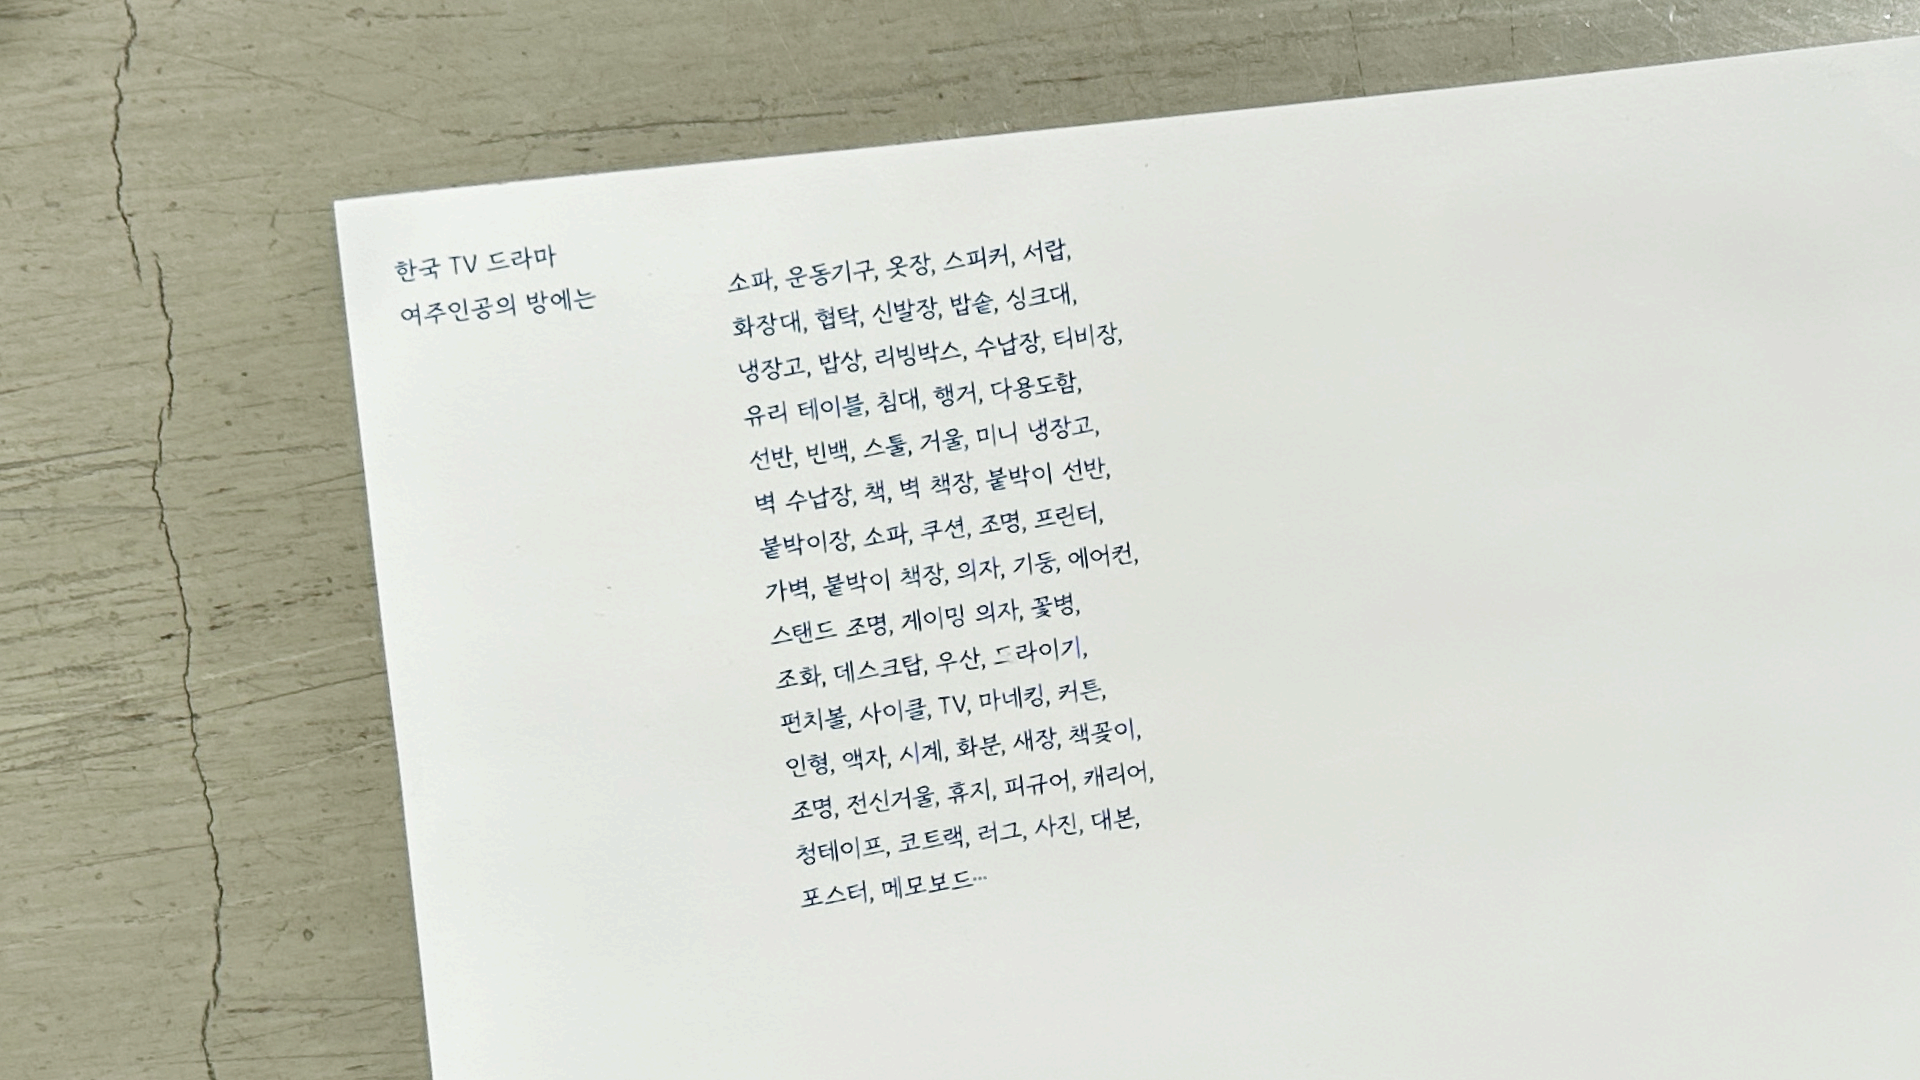 한국 TV 드라마
여주인공의 방에는
소파, 운동기구, 옷장, 스피커, 서랍,
화장대, 협탁, 신발장, 밥솥, 싱크대,
냉장고, 밥상, 리빙박스, 수납장, 티비장,
유리 테이블, 침대, 행거, 다용도함,
선반, 빈백, 스툴, 거울, 미니 냉장고,
벽 수납장, 책, 벽 책장, 붙박이 선반,
붙박이장, 소파, 쿠션, 조명, 프린터,
가벽, 붙박이 책장, 의자, 기둥, 에어컨,
스탠드 조명, 게이밍 의자, 꽃병,
조화, 데스크탑, 우산, 드라이기,
펀치볼, 사이클, TV, 마네킹, 커튼,
인형, 액자, 시계, 화분, 새장, 책꽂이,
조명, 전신거울, 휴지, 피규어, 캐리어,
청테이프, 코트랙, 러그, 사진, 대본,
포스터, 메모보드…